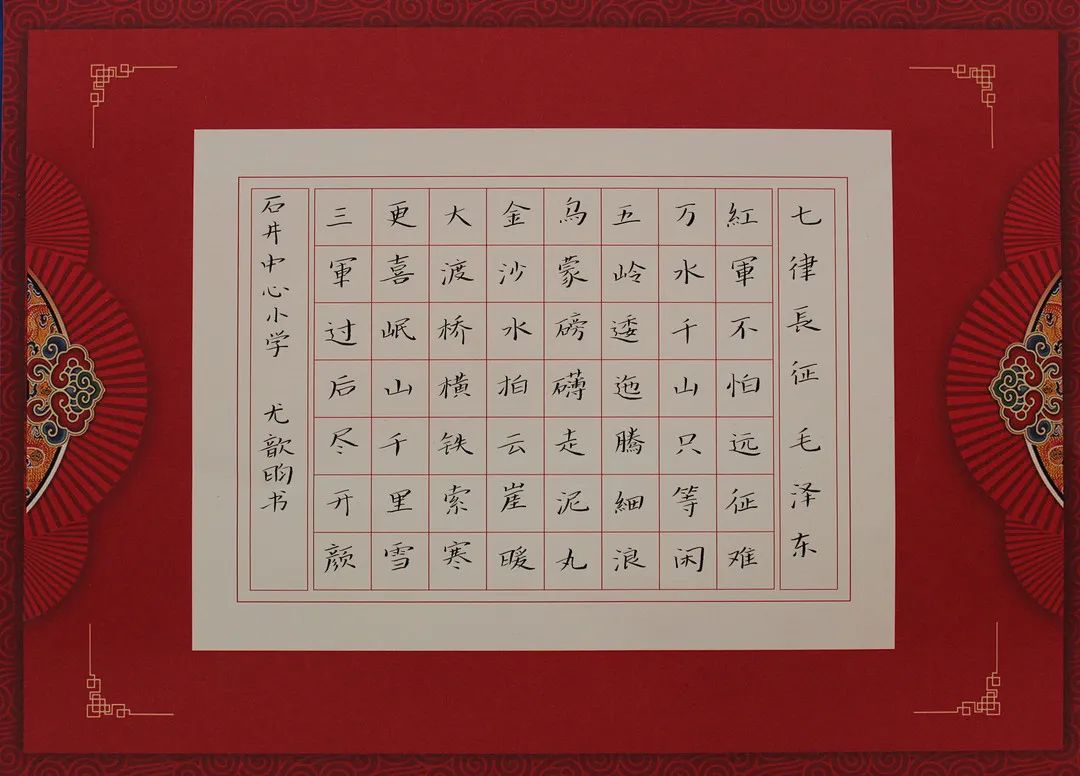 七律長征 毛泽东
紅軍不怕远征难
万水千山只等闲
五岭逶迤腾細浪
乌蒙磅礴走泥丸
金沙水拍云崖暖
大渡桥橫铁索寒
更喜岷山千里雪
三軍过后尽开颜
石井中心小学 尤歆昀书